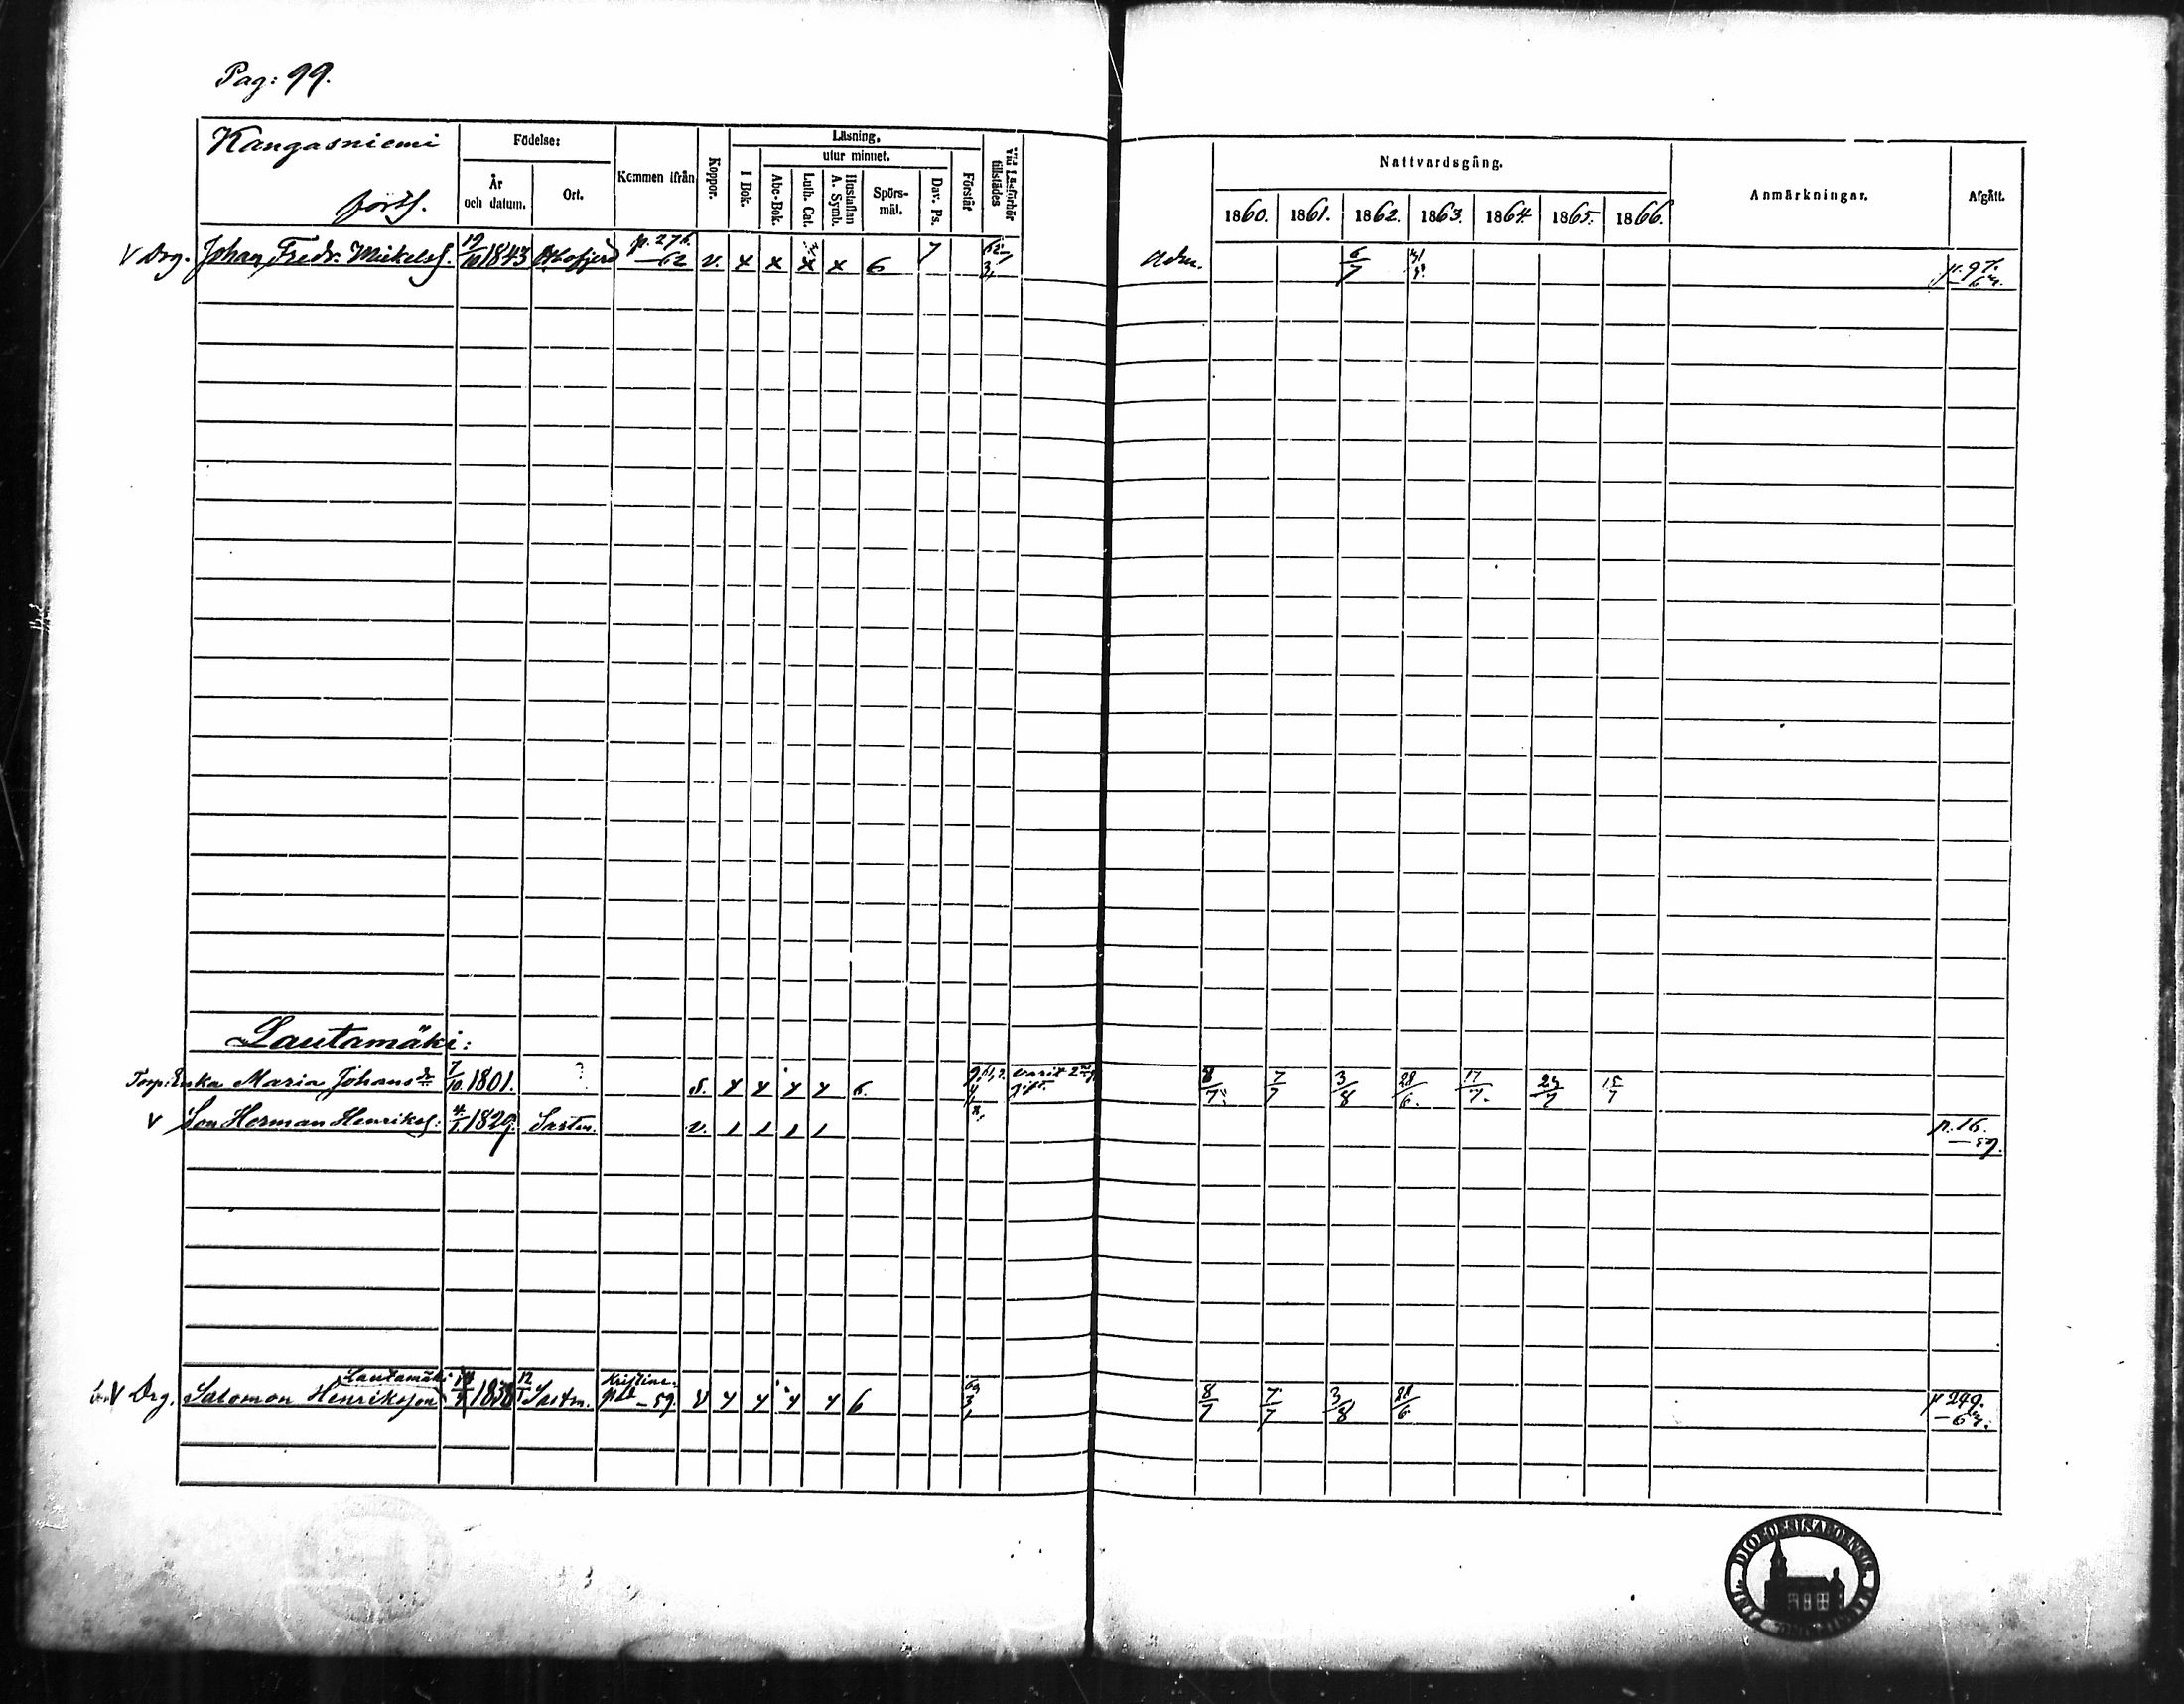 Pag: 99.
Kangasniemi
forts.
Födelse:
År och datum.
Ort.
Kommen ifrån
Koppor.
Läsning.
I Bok.
utur minnet.
Abc-Bok.
Luth. Cat.
Hustaflan A. Symb.
Spörs-mål.
Dav. Ps.
Förstår
Vid Läsförhör tillstädes
Nattvardsgång.
1860. 1861. 1862. 1863. 1864. 1865. 1866.
Anmärkningar.
Afgått.
V Drg. Johan Fredr. Mickelss. 1843 p. 276. —62 v. x x x x 6 7 Adm. 6/7 p. 97.
Lautamäki:
Torp: Enka Maria Johansdr 7/10 1801. ? s. 6. varit 2 gift. 8/7 7/7 3/8 28/6. 17/7. 24/7 15/7
V Son Herman Henrikss: 4/1. 1829. Sastm. v. p. 16. —59.
Lautamäki
V Drg. Salomon Henriksson 1838 12/1 Sastm. Kristine. —59. v 6 8/7 7/7 3/8 28/6 p 249.